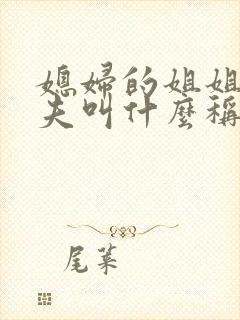 媳婦的姐姐
夫叫什麼稱
尾葉